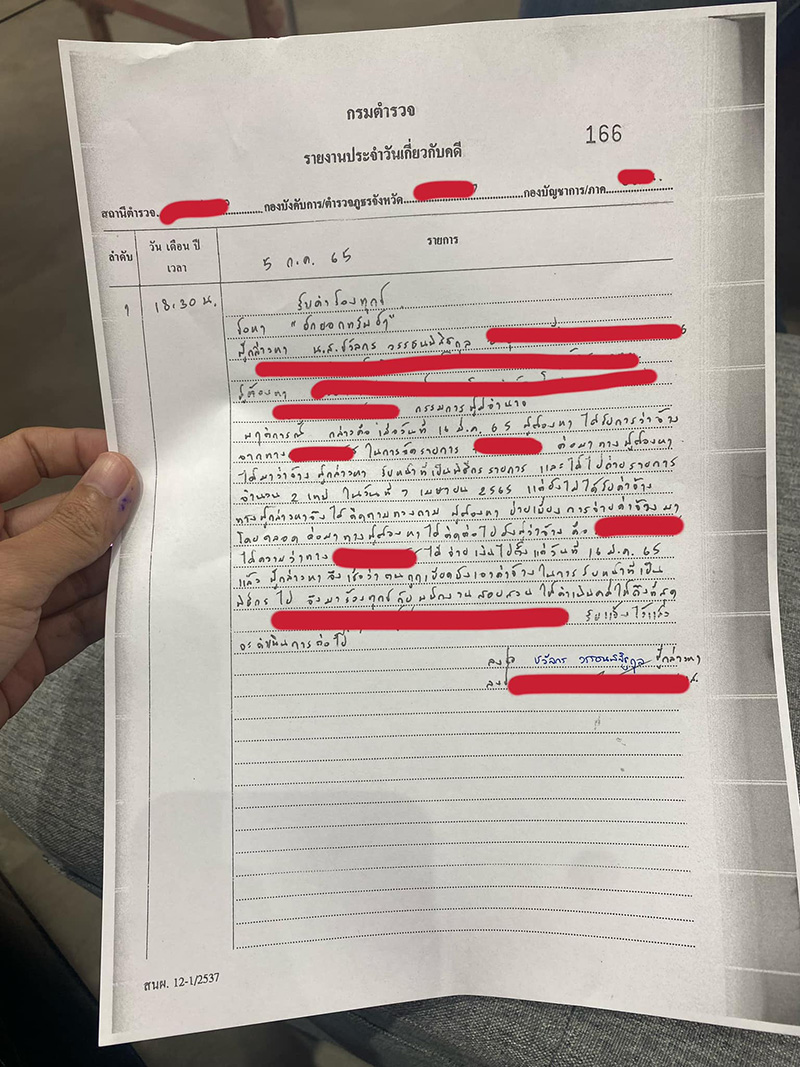 กรมตำรวจ
166
รายงานประจำวันเกี่ยวกับคดี
สถานีตำรวจ กองบังคับการ/ตำรวจภูธรจังหวัด กองบัญชาการ/ภาค
ลำดับ วัน เดือน ปี เวลา รายการ
5 ก.ค. 65
๑ 18.30 น. รับคำร้องทุกข์
ข้อหา "ยักยอกทรัพย์ฯ"
ผู้กล่าวหา น.ส.ชวัลกร วรรธนพิสิฐกุล
ผู้ต้องหา
กรรมการผู้มีอำนาจ
พฤติการณ์ กล่าวคือ เมื่อวันที่ 16 มี.ค. 65 ผู้ต้องหา ได้รับการว่าจ้าง
จากทาง ในการจัดรายการ ต่อมาทางผู้ต้องหา
ได้มาว่าจ้าง ผู้กล่าวหา รับหน้าที่เป็นพิธีกรรายการ และได้ไปถ่ายรายการ
จำนวน 2 เทป ในวันที่ 7 เมษายน 2565 แต่ยังไม่ได้รับค่าจ้าง
ทางผู้กล่าวหาจึงได้ติดตามทวงถาม ผู้ต้องหา บ่ายเบี่ยง การจ่ายค่าจ้าง มา
โดยตลอด ต่อมาทางผู้กล่าวหา ได้ติดต่อไปยังผู้ว่าจ้าง คือ
ได้ความว่าทาง ได้จ่ายเงินไปตั้งแต่วันที่ 16 มี.ค. 65
แล้ว ผู้กล่าวหา จึงเชื่อว่า ตนถูกเบียดบังเอาค่าจ้างในการ รับหน้าที่เป็น
พิธีกร ไป จึงมาร้องทุกข์กับพนักงานสอบสวน ให้ดำเนินคดีให้ถึงที่สุด
รับแจ้งไว้แล้ว
จะดำเนินการต่อไป
ลงชื่อ ชวัลกร วรรธนพิสิฐกุล ผู้กล่าวหา
ลงชื่อ
สนผ. 12-1/2537